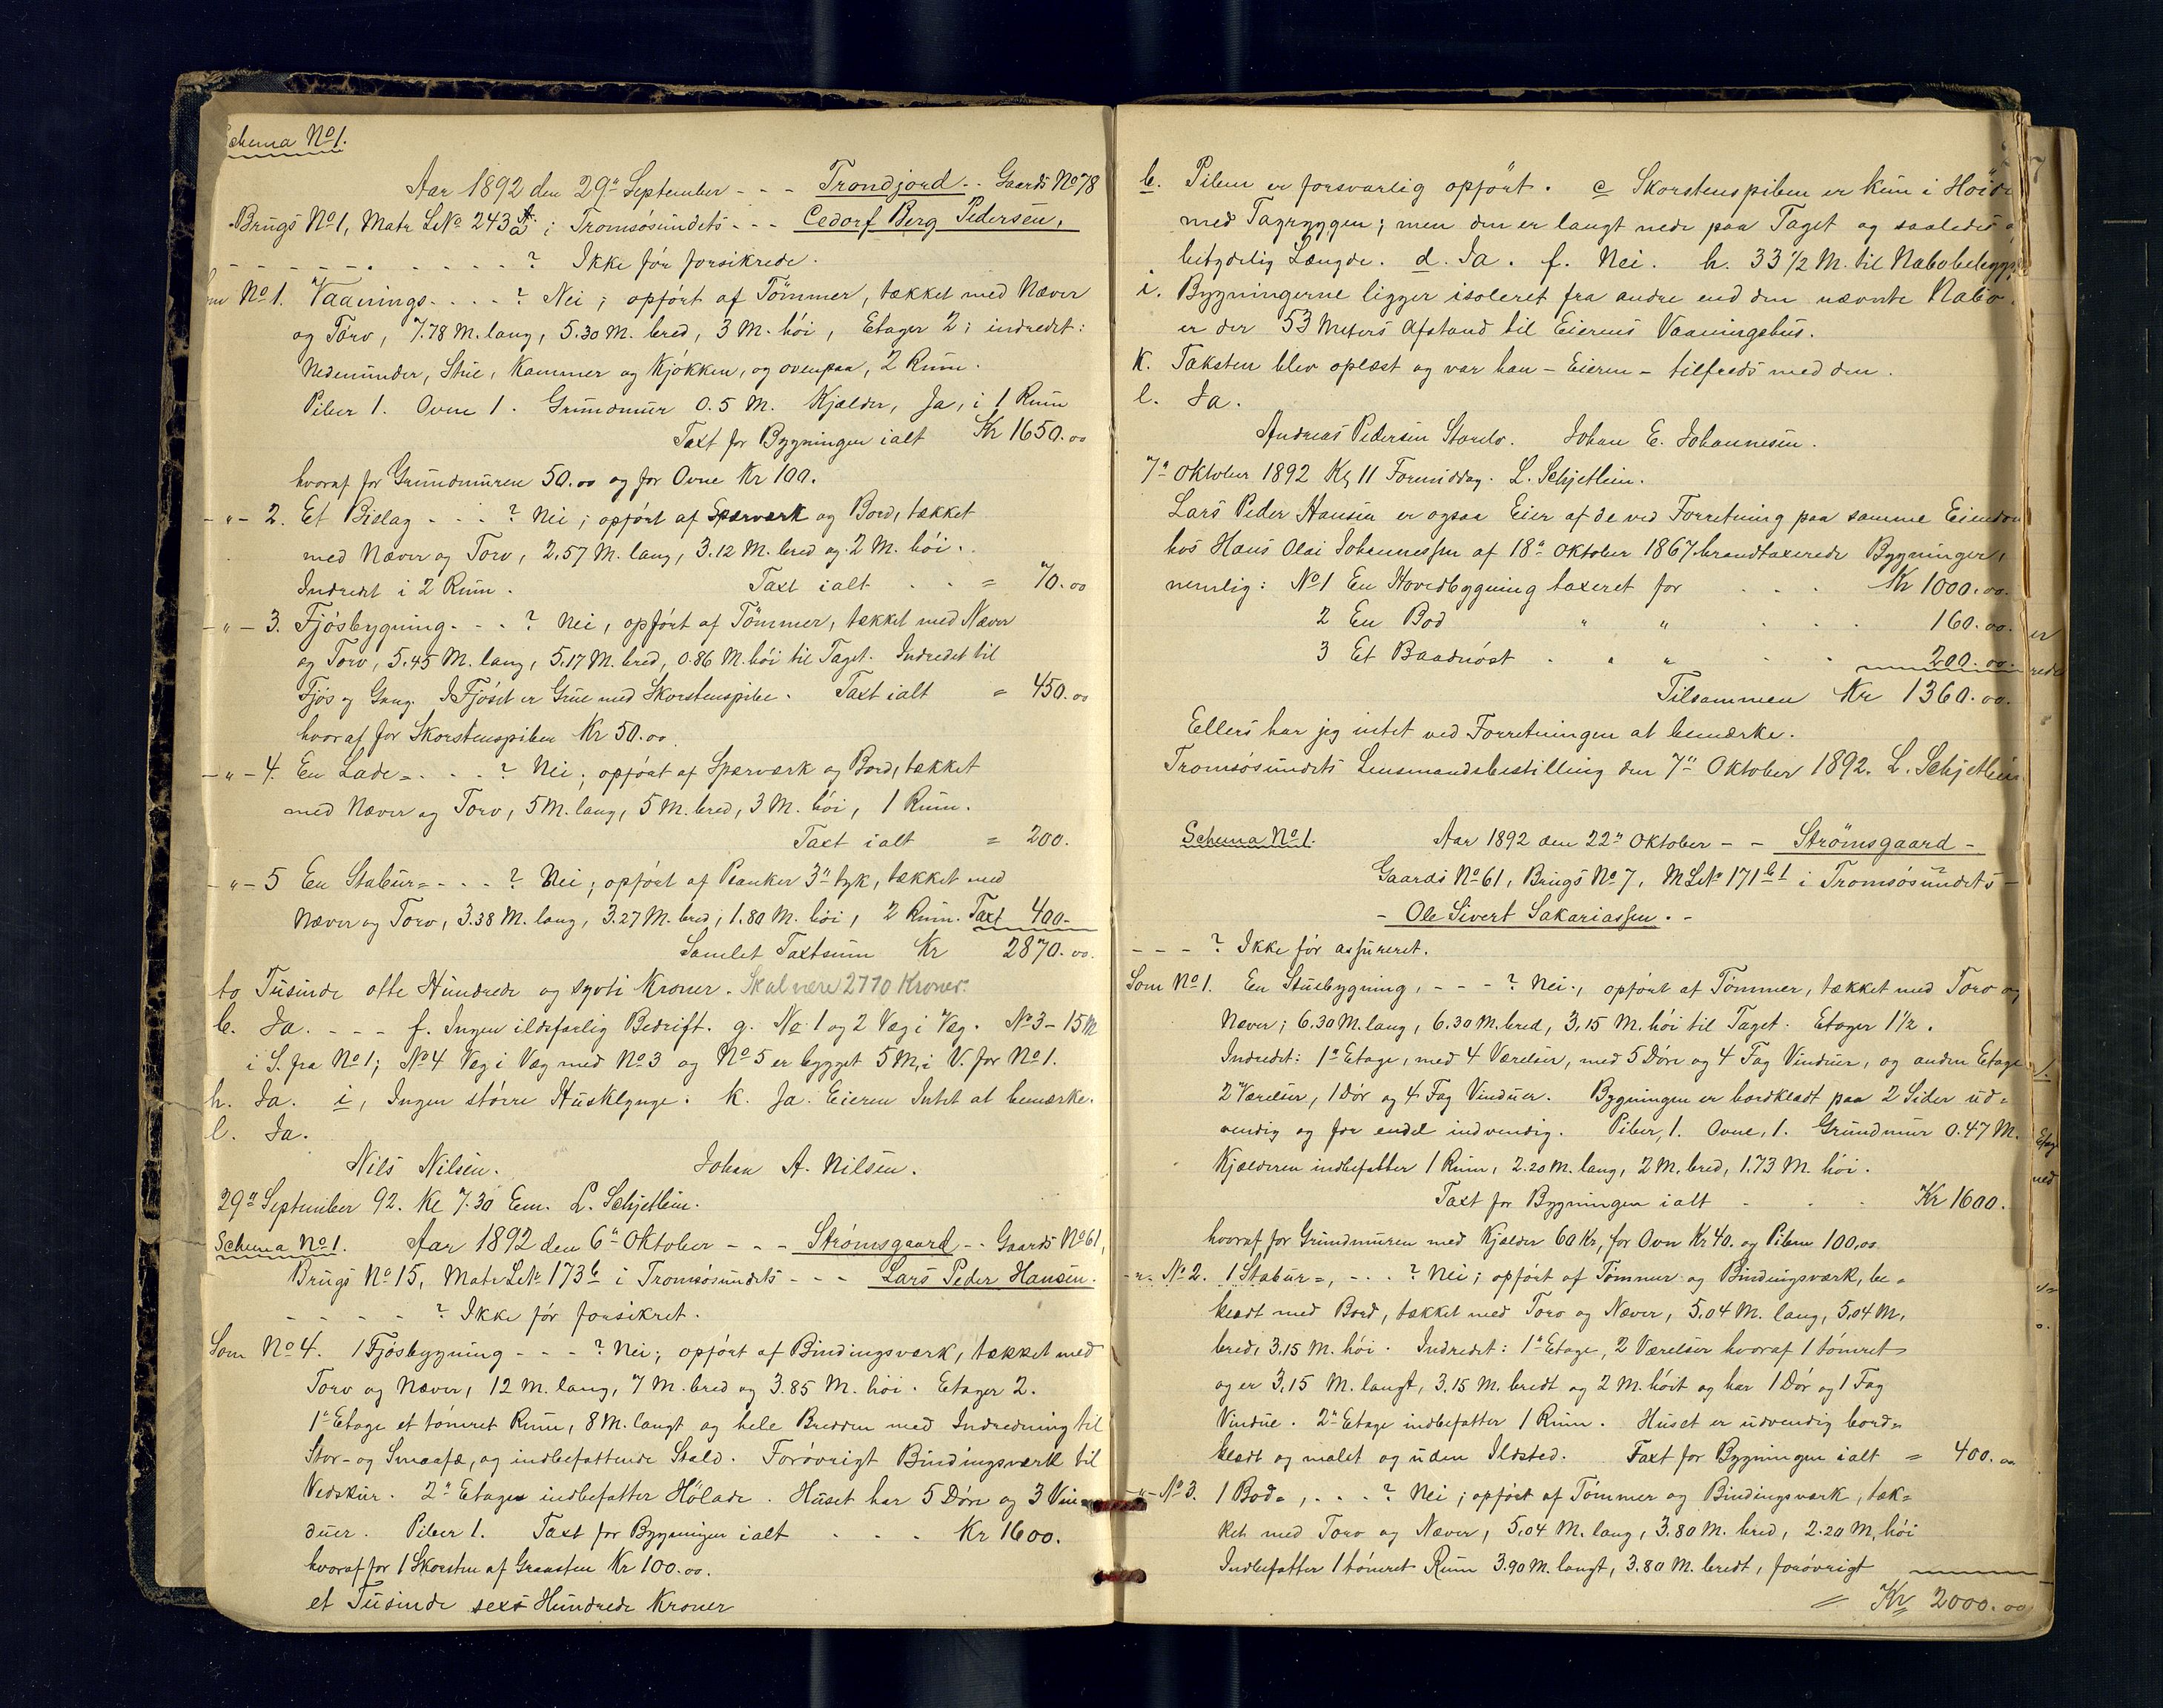 Schema No 1.
Aar 1892 den 29de September - - - Trondjord - - Gaards No 78
Brugs No 1, Matr. LNo 243 a i Tromsösundets - - - Cedorf Berg Pedersen,
- - - - - - - - - - ? Ikke för forsikrede.
No 1. Vaanings- . . . ? Nei; opfört af Tömmer, tækket med Næver
og Törv, 7.78 M. lang, 5.30 M. bred, 3 M. höi, Etager 2; indredet:
Nedenunder, Stue, Kammer og Kjökken, og ovenpaa, 2 Rum.
Piber 1. Ovne 1. Grundmur 0.5 M. Kjælder, Ja, i 1 Rum
Taxt for Bygningen ialt Kr 1650.00
hvoraf for Grundmuren 50.00 og for Ovne Kr 100.
-"- 2. Et Bislag - . . - ? Nei; opfört af Spærværk og Bord, tækket
med Næver og Torv, 2.57 M. lang, 3.12 M. bred og 2 M. höi.
Indredet i 2 Rum. Taxt ialt . . = 70.00
-"- 3. Fjösbygning - . . - ? Nei, opfört af Tömmer, tækket med Næver
og Torv, 5.45 M. lang, 5.17 M. bred, 0.86 M. höi til Taget. Indredet til
Fjös og Gang. I Fjöset er Grue med Skorstenspibe. Taxt ialt = 450.00
hvoraf for Skorstenspiben Kr 50.00
-"- 4. En Lade= . . - ? Nei; opfört af Spærværk og Bord, tækket
med Næver og Torv, 5 M. lang, 5 M. bred, 3 M. höi, 1 Rum.
Taxt ialt = 200.
-"- 5 En Stabur= - . . - ? Nei; opfört af Planker 3" tyk, tækket med
Næver og Torv, 3.38 M. lang, 3.27 M. bred, 1.80 M. höi, 2 Rum. Taxt 400-
Samlet Taxtsum Kr 2870.00.
to Tusinde otte Hundrede og sytti Kroner. Skal være 2770 Kroner.
b. Ja. - - - f. Ingen ildsfarlig Bedrift. g. No 1 og 2 Væg i Væg. No 3 - 15 M
i S. fra No 1; No 4 Væg i Væg med No 3 og No 5 er bygget 5 M, i V. for No 1.
h. Ja. i, Ingen större Husklynge. k. Ja. Eieren Intet at bemærke.
l. Ja.
Nils Nilsen. Johan A. Nilsen.
29de September 92. Kl 7.30 Em. L. Schjetlein.
Schema No 1. Aar 1892 den 6te Oktober - - - Strömsgaard - - Gaards No 61,
Brugs No 15, Matr. LNo 173 b i Tromsösundets - - - Lars Peder Hansen.
- - - - - ? Ikke för forsikret.
Som No 4. 1 Fjösbygning - - - ? Nei; opfört af Bindingsværk, tækket med
Torv og Næver, 12 M. lang, 7 M. bred og 3.85 M. höi. Etager 2.
1ste Etage et tömret Rum, 8 M. langt og hele Bredden med Indredning til
Stor- og Smaafæ, og indbefattende Stald. Forövrigt Bindingsværk til
Vedskur. 2den Etage indbefatter Hölade. Huset har 5 Döre og 3 Vin=
duer. Piber 1. Taxt for Bygningen ialt . . . . Kr 1600.
hvoraf for 1 Skorsten af Graasten Kr 100.00.
et Tusinde sex Hundrede Kroner
b. Piben er forsvarlig opfört. c Skorstenspiben er kun i Höide
med Tagryggen; men den er langt nede paa Taget og saaledes
betydelig Længde. d. Ja. f. Nei. h. 33 1/2 M. til Nabobebygg
i. Bygningerne ligger isoleret fra andre end den nævnte Nabo.
er der 53 Meters Afstand til Eierens Vaaningshus.
k. Taksten blev oplæst og var han - Eieren - tilfreds med den.
l. Ja.
Andreas Pedersen Storelv. Johan E. Johannesen.
7de Oktober 1892 Kl 11 Formiddag. L. Schjetlein.
Lars Peder Hansen er ogsaa Eier af de ved Forretning paa samme Eiendom
hos Hans Olai Johannessen af 18de Oktober 1867 brandtaxerede Bygninger,
nemlig: No 1 En Hovedbygning taxeret for . . . Kr 1000.00.
2 En Bod " " . . . 160.00.
3 Et Baadnöst . " " . . 200.00.
Tilsammen Kr 1360.00.
Ellers har jeg intet ved Forretningen at bemærke.
Tromsösundets Lensmandsbestilling den 7de Oktober 1892. L. Schjetlein
Schema No 1. Aar 1892 den 22de Oktober - - Strömsgaard -
Gaards No 61, Brugs No 7, MLNo 171 b 1 i Tromsösundets -
- Ole Sivert Sakariassen. -
- - - ? Ikke för assureret.
Som No 1. En Stuebygning, - - - ? Nei; opfört af Tömmer, tækket med Torv og
Næver; 6.30 M. lang, 6.30 M. bred, 3,15 M. höi til Taget. Etager 1 1/2.
Indredet: 1ste Etage, med 4 Værelser, med 5 Döre og 4 Fag Vinduer, og anden Etage
2 Værelser, 1 Dör og 4 Fag Vinduer. Bygningen er bordklædt paa 2 Sider ud=
vendig og for endel indvendig. Piber, 1. Ovne, 1. Grundmur 0.47 M.
Kjælderen indbefatter 1 Rum, 2.20 M. lang, 2 M. bred, 1.73 M. höi.
Taxt for Bygningen ialt . . . Kr 1600.
hvoraf for Grundmuren med Kjælder 60 Kr, for Ovn Kr 40. og Piben 100,00
-"- No 2. 1 Stabur=, - . . ? Nei; opfört af Tömmer og Bindingsværk, be=
klædt med Bord, tækket med Torv og Næver, 5.04 M. lang, 5,04 M,
bred, 3.15 M. höi. Indredet: 1ste Etage, 2 Værelser hvoraf 1 tömret
og er 3,15 M. langt, 3,15 M. bredt og 2 M. höit og har 1 Dör og 1 Fag
Vindue. 2den Etage indbefatter 1 Rum. Huset er udvendig bord=
klædt og malet og uden Ildsted. Taxt for Bygningen ialt = 400.00
-"- No 3. 1 Bod=, . . . ? Nei; opfört af Tömmer og Bindingsværk, tæk=
ket med Torv og Næver, 5,04 M. lang, 3.80 M. bred, 2.20 M, höi
Indbefatter 1 tömret Rum 3.90 M. langt, 3.80 M. bredt, forövrigt
= Kr 2000.00